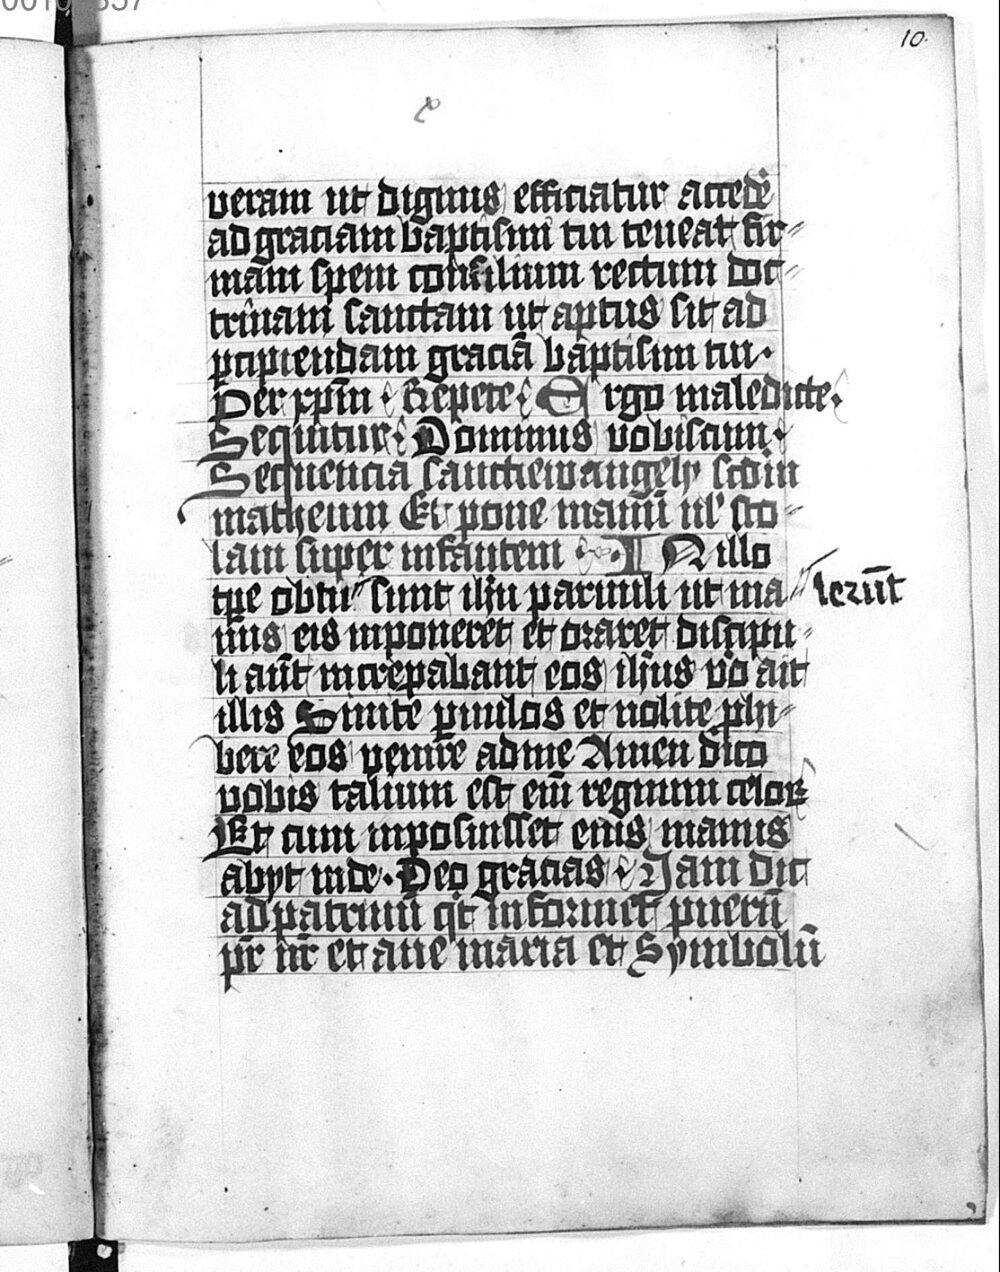 10.
veram ut dignus efficiatur accedē
ad graciam baptismi tui teneat fir〃
mam spem consilium rectum doc〃
trinam sanctam ut aptus sit ad
ꝑcipiendam graciā baptismi tui·
Per xp̄m · Repete · Ergo maledicte·
Sequitur · Dominus vobiscum ·
Sequencia sancti ewangelij scdm̄
matheum Et pone manū ul' sto〃
lam super infantem · IN illo
tp̄e obtu〃 sunt ih̄u paruuli ut ma〃 lerūt
nus eis inponeret et oraret discipu〃
li aūt increpabant eos ih̄us v̊o ait
illis Sinite ꝑuulos et nolite ꝓhi〃
bere eos venire ad me Amen dico
vobis talium est eīm regnum celoꝝ
Et cum inposuisset eius manus
abijt inde · Deo gracias · Jam dic
ad patrinū qt̄ informet puerū
pr̄ nr̄ et aue maria et Symbolū